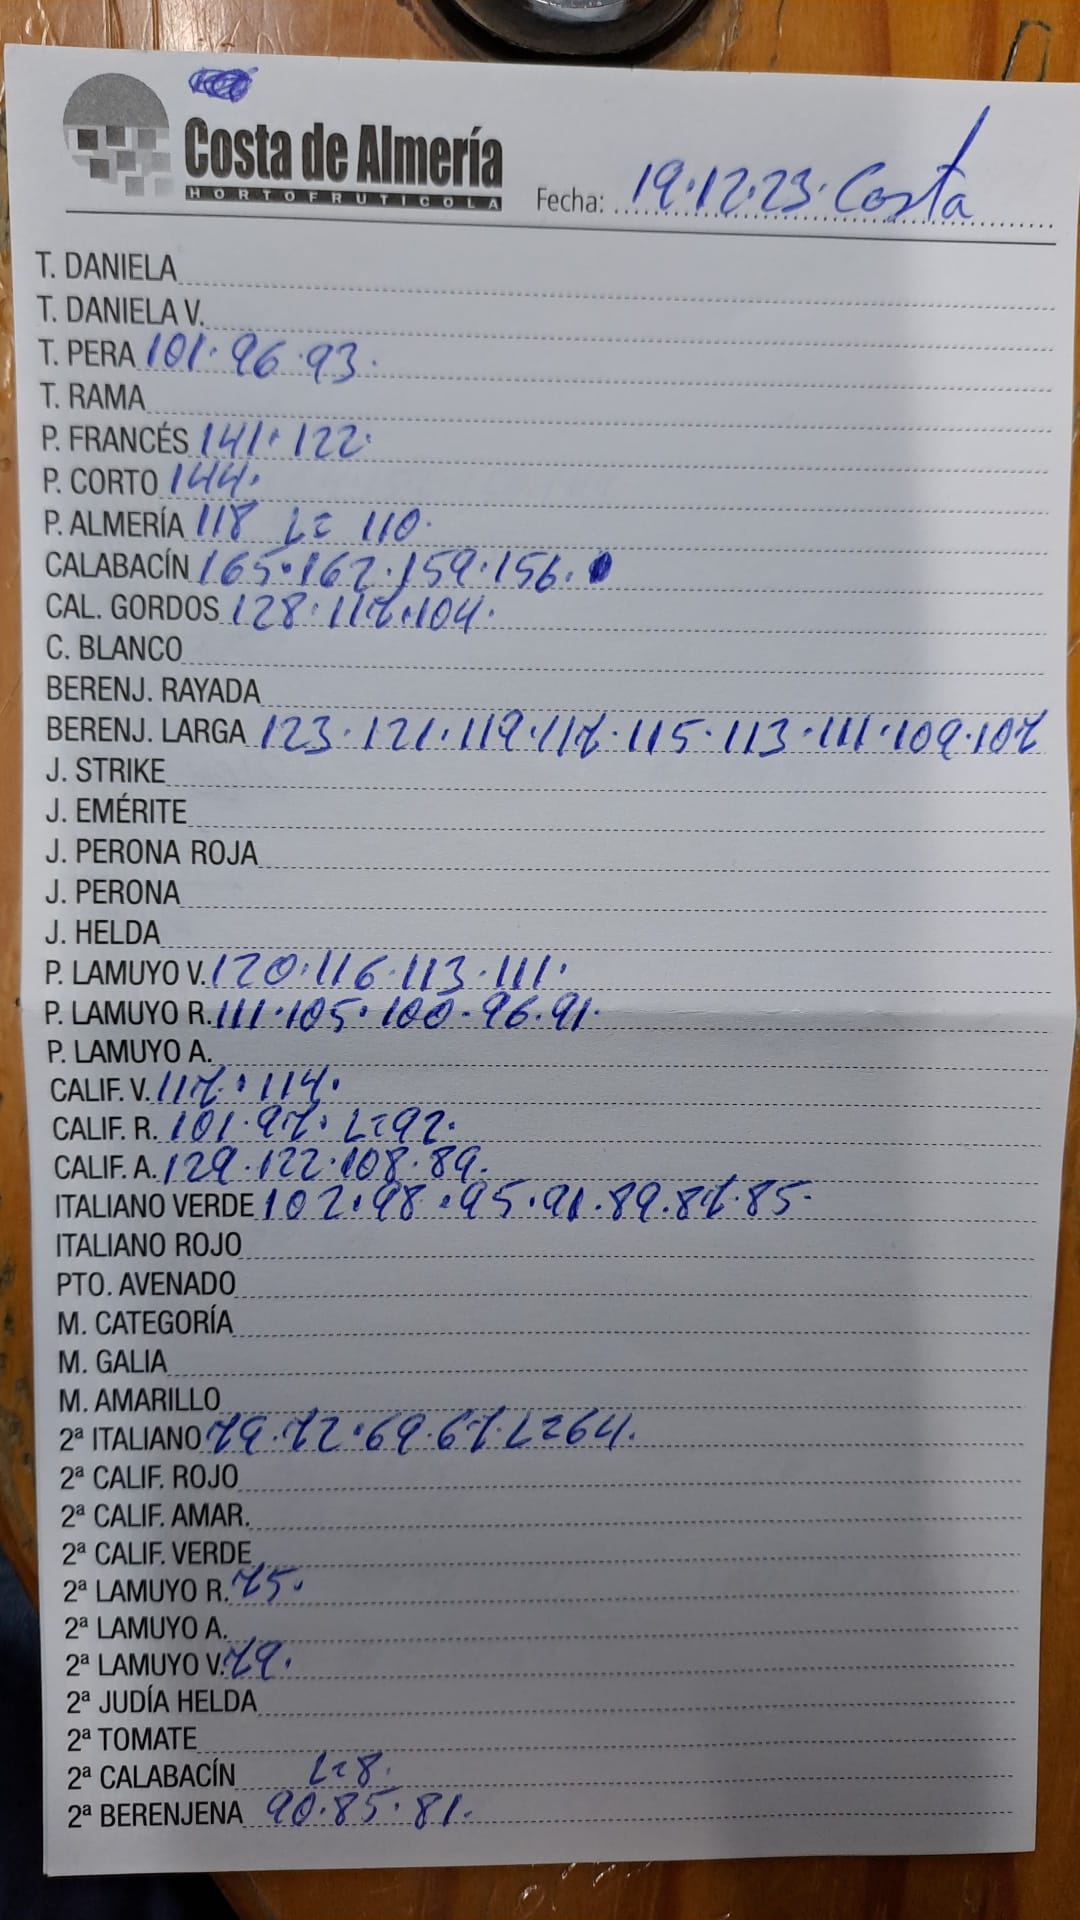 Costa de Almería
HORTOFRUTICOLA
Fecha: 19.12.23. Costa
T. DANIELA
T. DANIELA V.
T. PERA 101. 96. 93.
T. RAMA
P. FRANCÉS 141. 122.
P. CORTO 144.
P. ALMERÍA 118 L= 110.
CALABACÍN 165. 162. 159. 156.
CAL. GORDOS 128. 117. 104.
C. BLANCO
BERENJ. RAYADA
BERENJ. LARGA 123. 121. 119. 117. 115. 113. 111. 109. 107
J. STRIKE
J. EMÉRITE
J. PERONA ROJA
J. PERONA
J. HELDA
P. LAMUYO V. 120. 116. 113. 111.
P. LAMUYO R. 111. 105. 100. 96. 91.
P. LAMUYO A.
CALIF. V. 117. 114.
CALIF. R. 101. 97. L=92.
CALIF. A. 129. 122. 108. 89.
ITALIANO VERDE 102. 98. 95. 91. 89. 87. 85.
ITALIANO ROJO
PTO. AVENADO
M. CATEGORÍA
M. GALIA
M. AMARILLO
2ª ITALIANO 79. 72. 69. 67. L=64.
2ª CALIF. ROJO
2ª CALIF. AMAR.
2ª CALIF. VERDE
2ª LAMUYO R. 75.
2ª LAMUYO A.
2ª LAMUYO V. 79.
2ª JUDÍA HELDA
2ª TOMATE
2ª CALABACÍN L=8.
2ª BERENJENA 90. 85. 81.